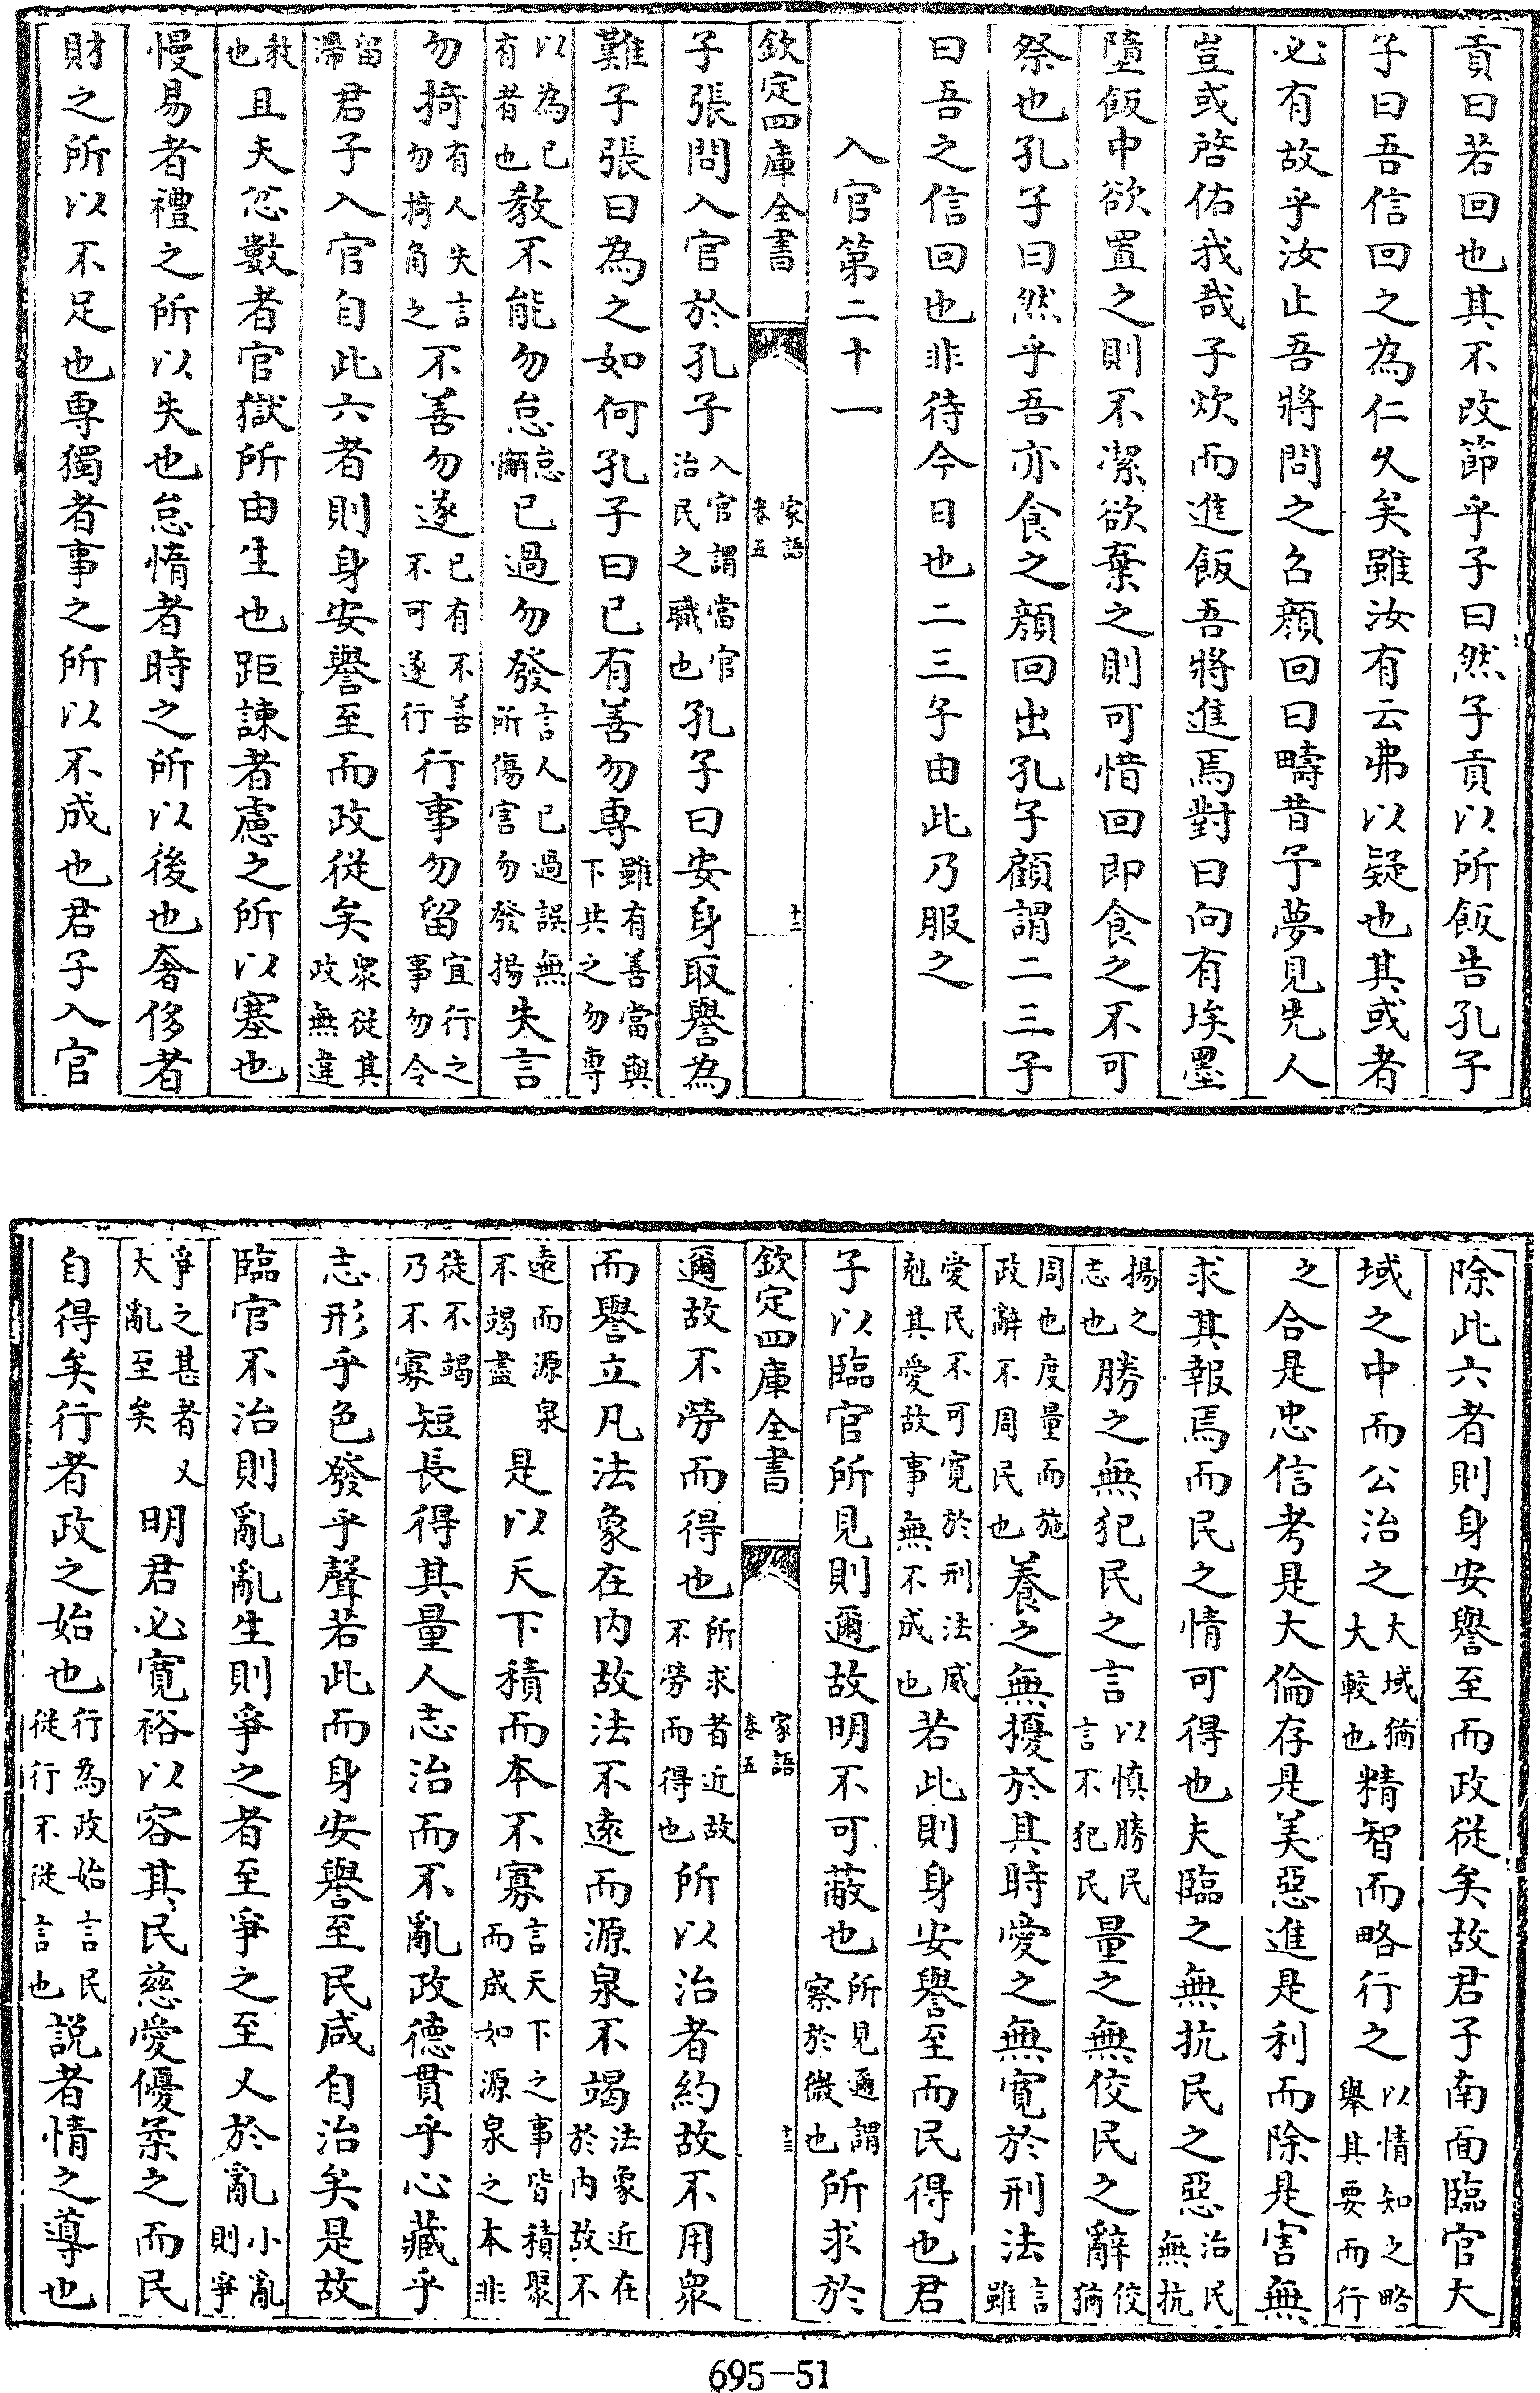 貢曰若回也其不改節乎子曰然子貢以所飯告孔子
子曰吾信回之為仁久矣雖汝有云弗以疑也其或者
必有故乎汝止吾將問之召顔回曰疇昔予夢見先人
豈或啓佑我哉子炊而進飯吾將進焉對曰向有埃墨
墮飯中欲置之則不潔欲棄之則可惜回即食之不可
祭也孔子曰然乎吾亦食之顔回出孔子顧謂二三子
曰吾之信回也非待今日也二三子由此乃服之
入官第二十一
欽定四庫全書 家語 卷五 十二
子張問入官於孔子入官謂當官治民之職也孔子曰安身取譽為
難子張曰為之如何孔子曰已有善勿專雖有善當與下共之勿專
以為已有者也教不能勿怠怠懈已過勿發言人已過誤無所傷害勿發揚失言
勿掎有人失言勿掎角之不善勿遂已有不善不可遂行行事勿留宜行之事勿令
留滯君子入官自此六者則身安譽至而政從矣衆從其政無違
教也且夫忿數者官獄所由生也距諫者慮之所以塞也
慢易者禮之所以失也怠惰者時之所以後也奢侈者
財之所以不足也專獨者事之所以不成也君子入官
除此六者則身安譽至而政從矣故君子南面臨官大
域之中而公治之大域猶大較也精智而略行之以情知之略舉其要而行
之合是忠信考是大倫存是美惡進是利而除是害無
求其報焉而民之情可得也夫臨之無抗民之惡治民無抗
揚之志也勝之無犯民之言以慎勝民言不犯民量之無佼民之辭佼猶
周也度量而施政辭不周民也養之無擾於其時愛之無寛於刑法言雖
愛民不可寛於刑法威剋其愛故事無不成也若此則身安譽至而民得也君
子以臨官所見則邇故明不可蔽也所見邇謂察於微也所求於
欽定四庫全書 家語 卷五 十三
邇故不勞而得也所求者近故不勞而得也所以治者約故不用衆
而譽立凡法象在内故法不遠而源泉不竭法象近在於内故不
遠而源泉不竭盡是以天下積而本不寡言天下之事皆積聚而成如源泉之本非
徒不竭乃不寡短長得其量人志治而不亂政德貫乎心藏乎
志形乎色發乎聲若此而身安譽至民咸自治矣是故
臨官不治則亂亂生則爭之者至爭之至又於亂小亂則爭
爭之甚者又大亂至矣明君必寛裕以容其民慈愛優柔之而民
自得矣行者政之始也行為政始言民從行不從言也説者情之導也
695-51